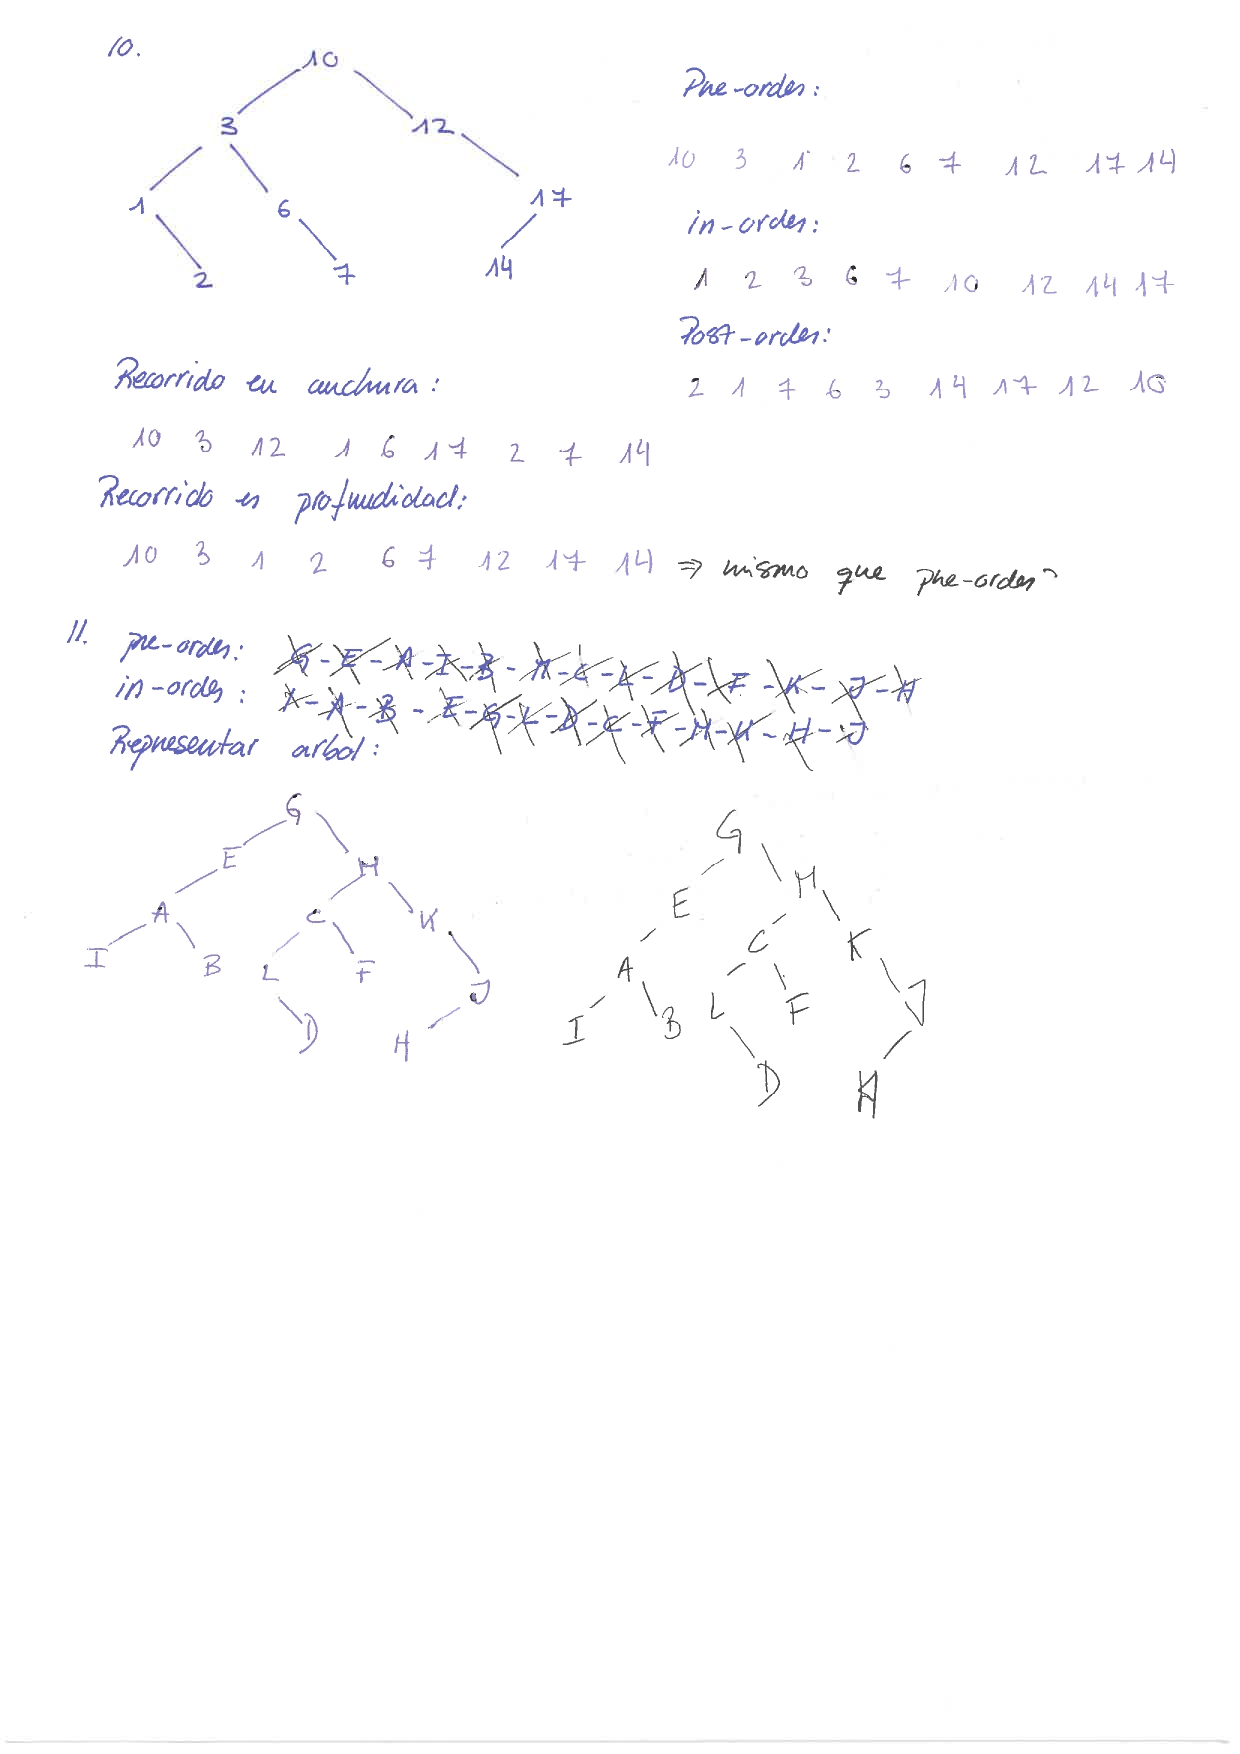 10.
10
3 12
1 6 17
2 7 14
Pre-orden:
10 3 1 2 6 7 12 17 14
in-orden:
1 2 3 6 7 10 12 14 17
Post-orden:
2 1 7 6 3 14 17 12 10
Recorrido en anchura:
10 3 12 1 6 17 2 7 14
Recorrido en profundidad:
10 3 1 2 6 7 12 17 14 ⇒ mismo que pre-orden
11. pre-orden: G-E-A-I-B-M-C-L-D-F-K-J-H
in-orden: I-A-B-E-G-L-D-C-F-M-K-H-J
Representar arbol:
G
E M
A C K
I B L F J
D H
G
E M
A C K
I B L F J
D H